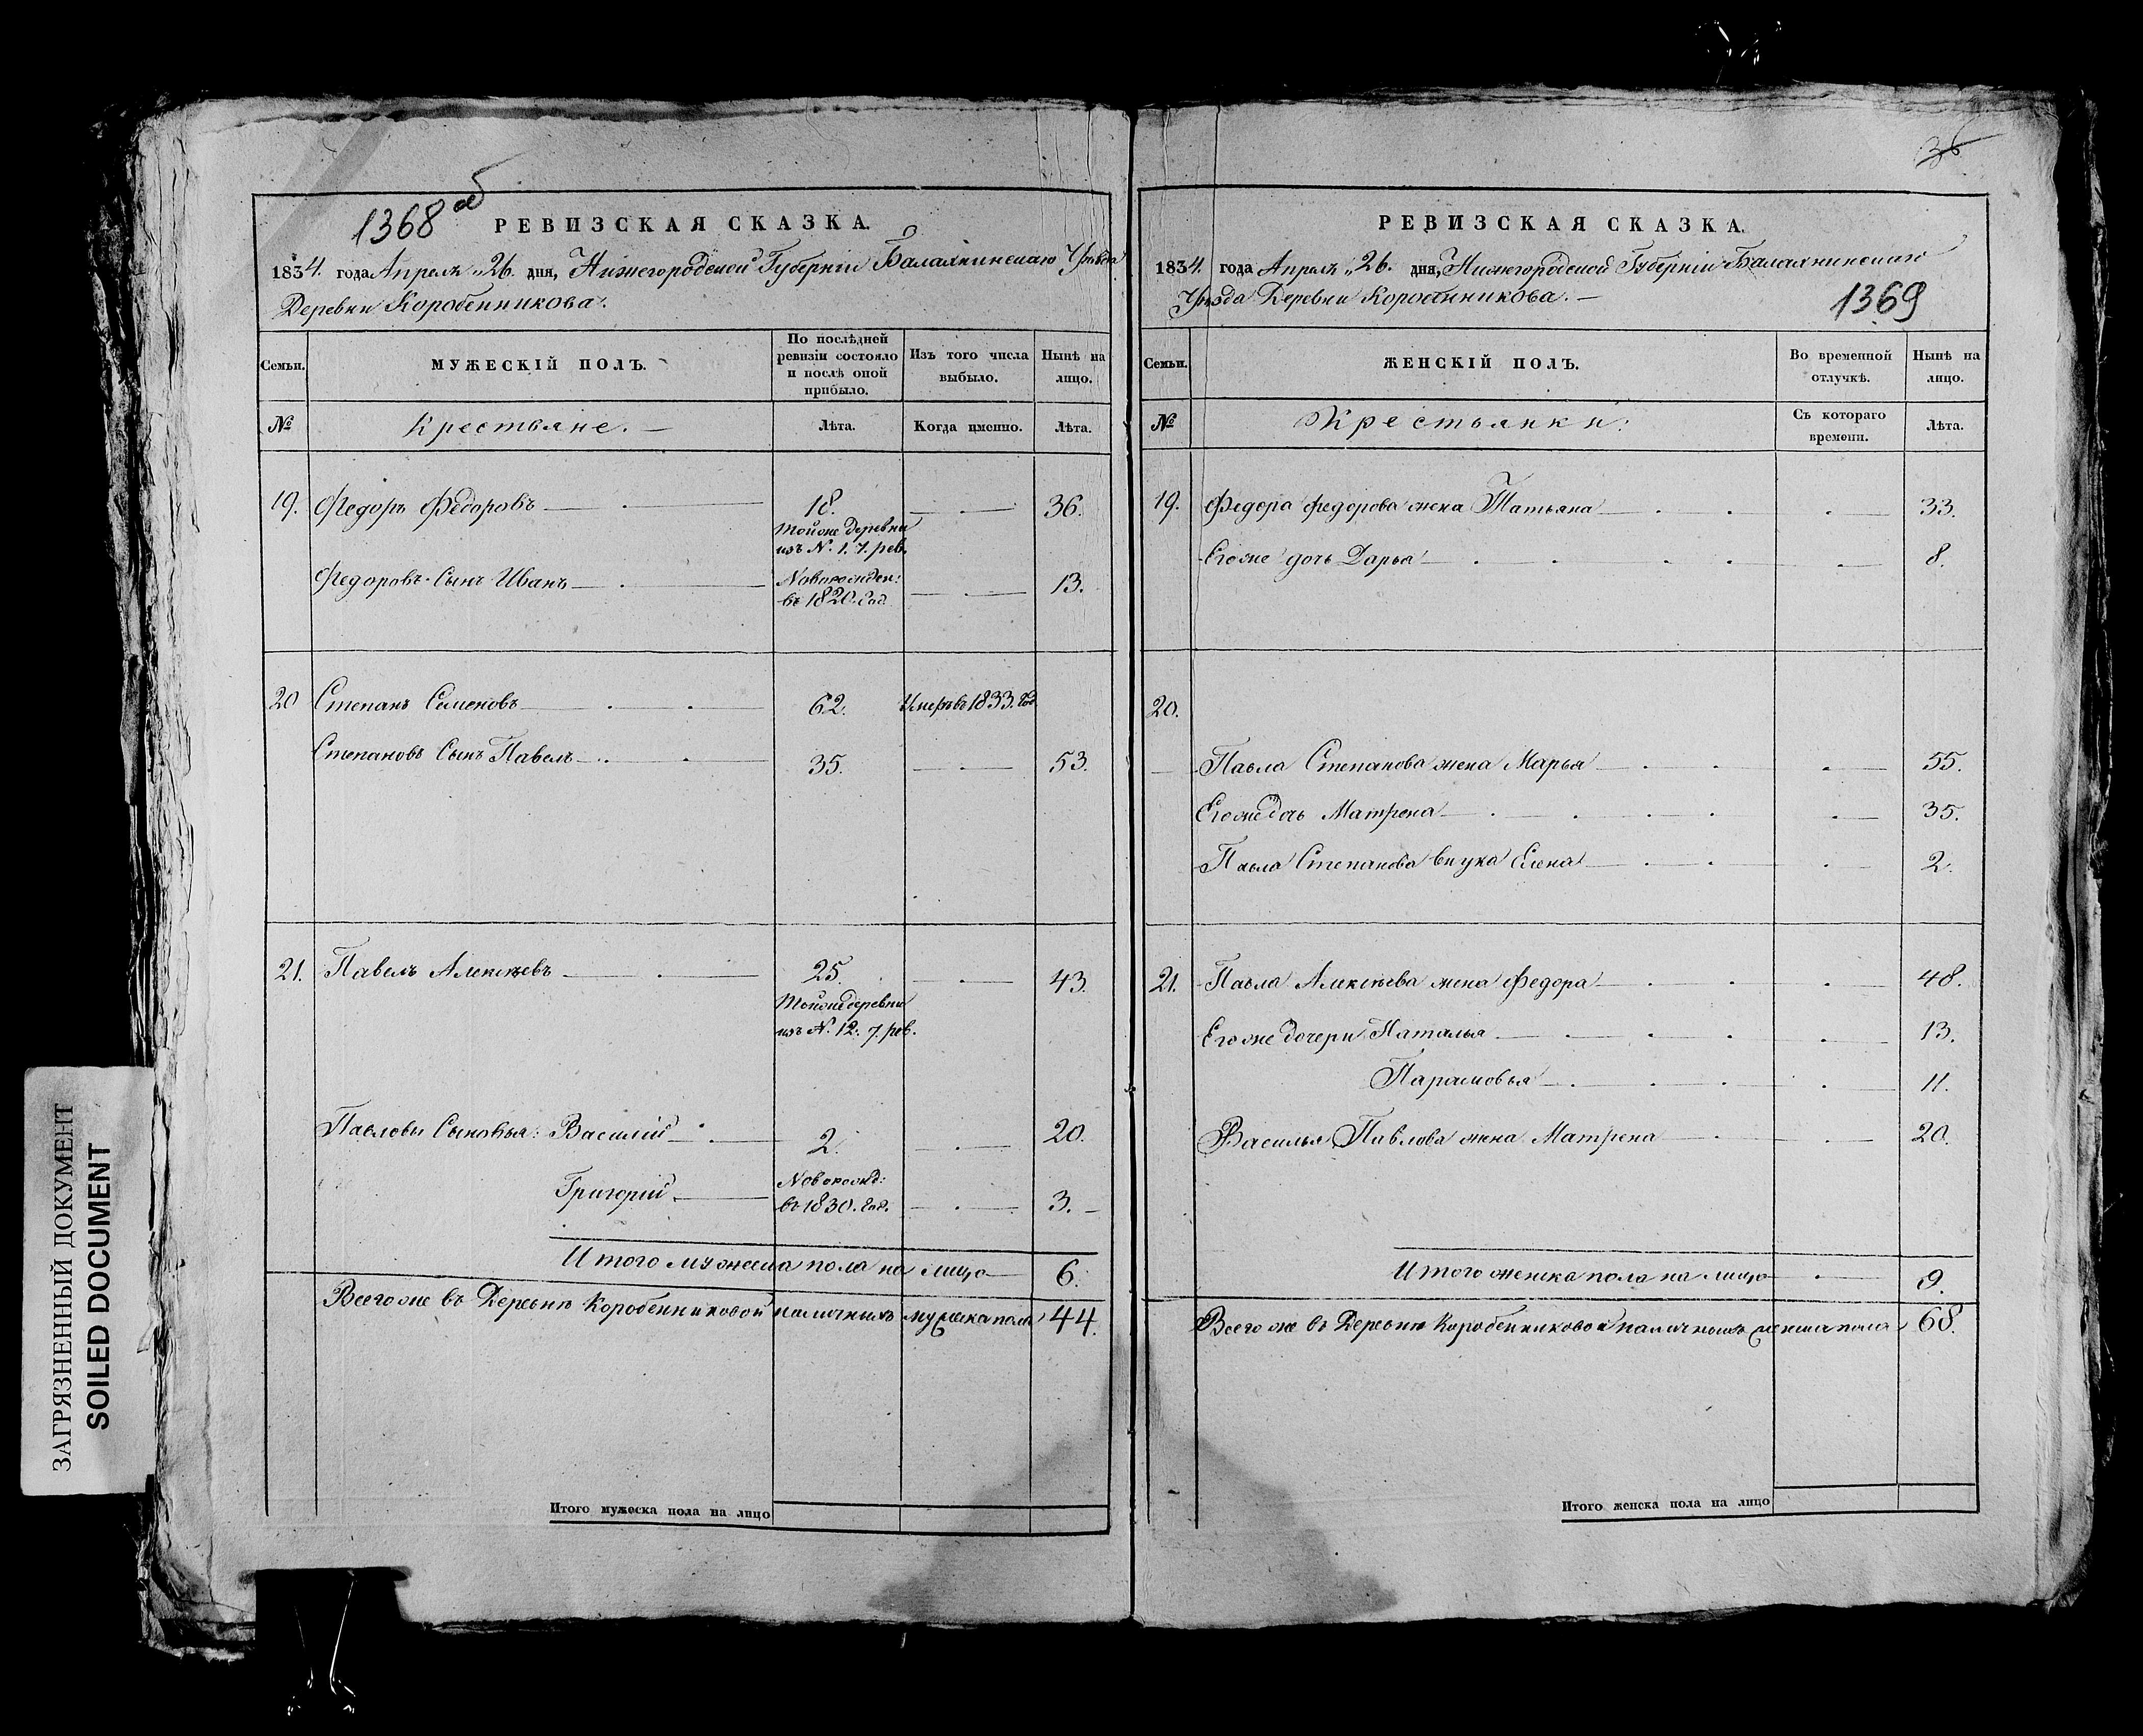 1368 об
РЕВИЗСКАЯ СКАЗКА.
1834. года Апреля „26. дня, Нижегородской Губерніи Балахнинскаго Уѣзда
Деревни Коробенникова.
Семьи.
МУЖЕСКІЙ ПОЛЪ.
По послѣдней
ревизіи состояло
и послѣ оной
прибыло.
Изъ того числа
выбыло.
Нынѣ на
лицо.
№
Крестьяне.
Лѣта.
Когда именно.
Лѣта.
19. Федоръ Федоровъ 18. 36.
Тойже деревни
изъ №. 1. 7. рев.
Федоровъ Сынъ Иванъ Новорожден: 13.
въ 1820. год.
20 Степанъ Семеновъ 62. Умеръ въ 1833. год
Степановъ Сынъ Павелъ 35. 53.
21. Павелъ Алексѣевъ 25. 43.
Тойже деревни
изъ №. 12. 7. рев.
Павловы Сыновья: Василій 2. 20.
Григорій Новорожд: 3.
въ 1830. год.
Итого мужеска пола на лицо 6.
Всего же въ Деревнѣ Коробенниковой наличныхъ мужеска пола 44.
Итого мужеска пола на лицо
36
РЕВИЗСКАЯ СКАЗКА.
1834. года Апрель „26. дня, Нижегородской Губерніи Балахнинскаго
Уѣзда Деревни Коробенникова.
1369
Семьи.
ЖЕНСКІЙ ПОЛЪ.
Во временной
отлучкѣ.
Нынѣ на
лицо.
№
Крестьянки:
Съ котораго
времени.
Лѣта.
19. Федора Федорова жена Татьяна 33.
Егоже дочь Дарья 8.
20.
Павла Степанова жена Марья 55.
Егоже дочь Матрена 35.
Павла Степанова внука Елена 2.
21. Павла Алексѣева жена Федора 48.
Егоже дочери Наталья 13.
Парасковья 11.
Василья Павлова жена Матрена 20.
Итого женска пола на лицо 9.
Всего же въ Деревнѣ Коробенниковой наличныхъ женска пола 68.
Итого женска пола на лицо
ЗАГРЯЗНЕННЫЙ ДОКУМЕНТ
SOILED DOCUMENT